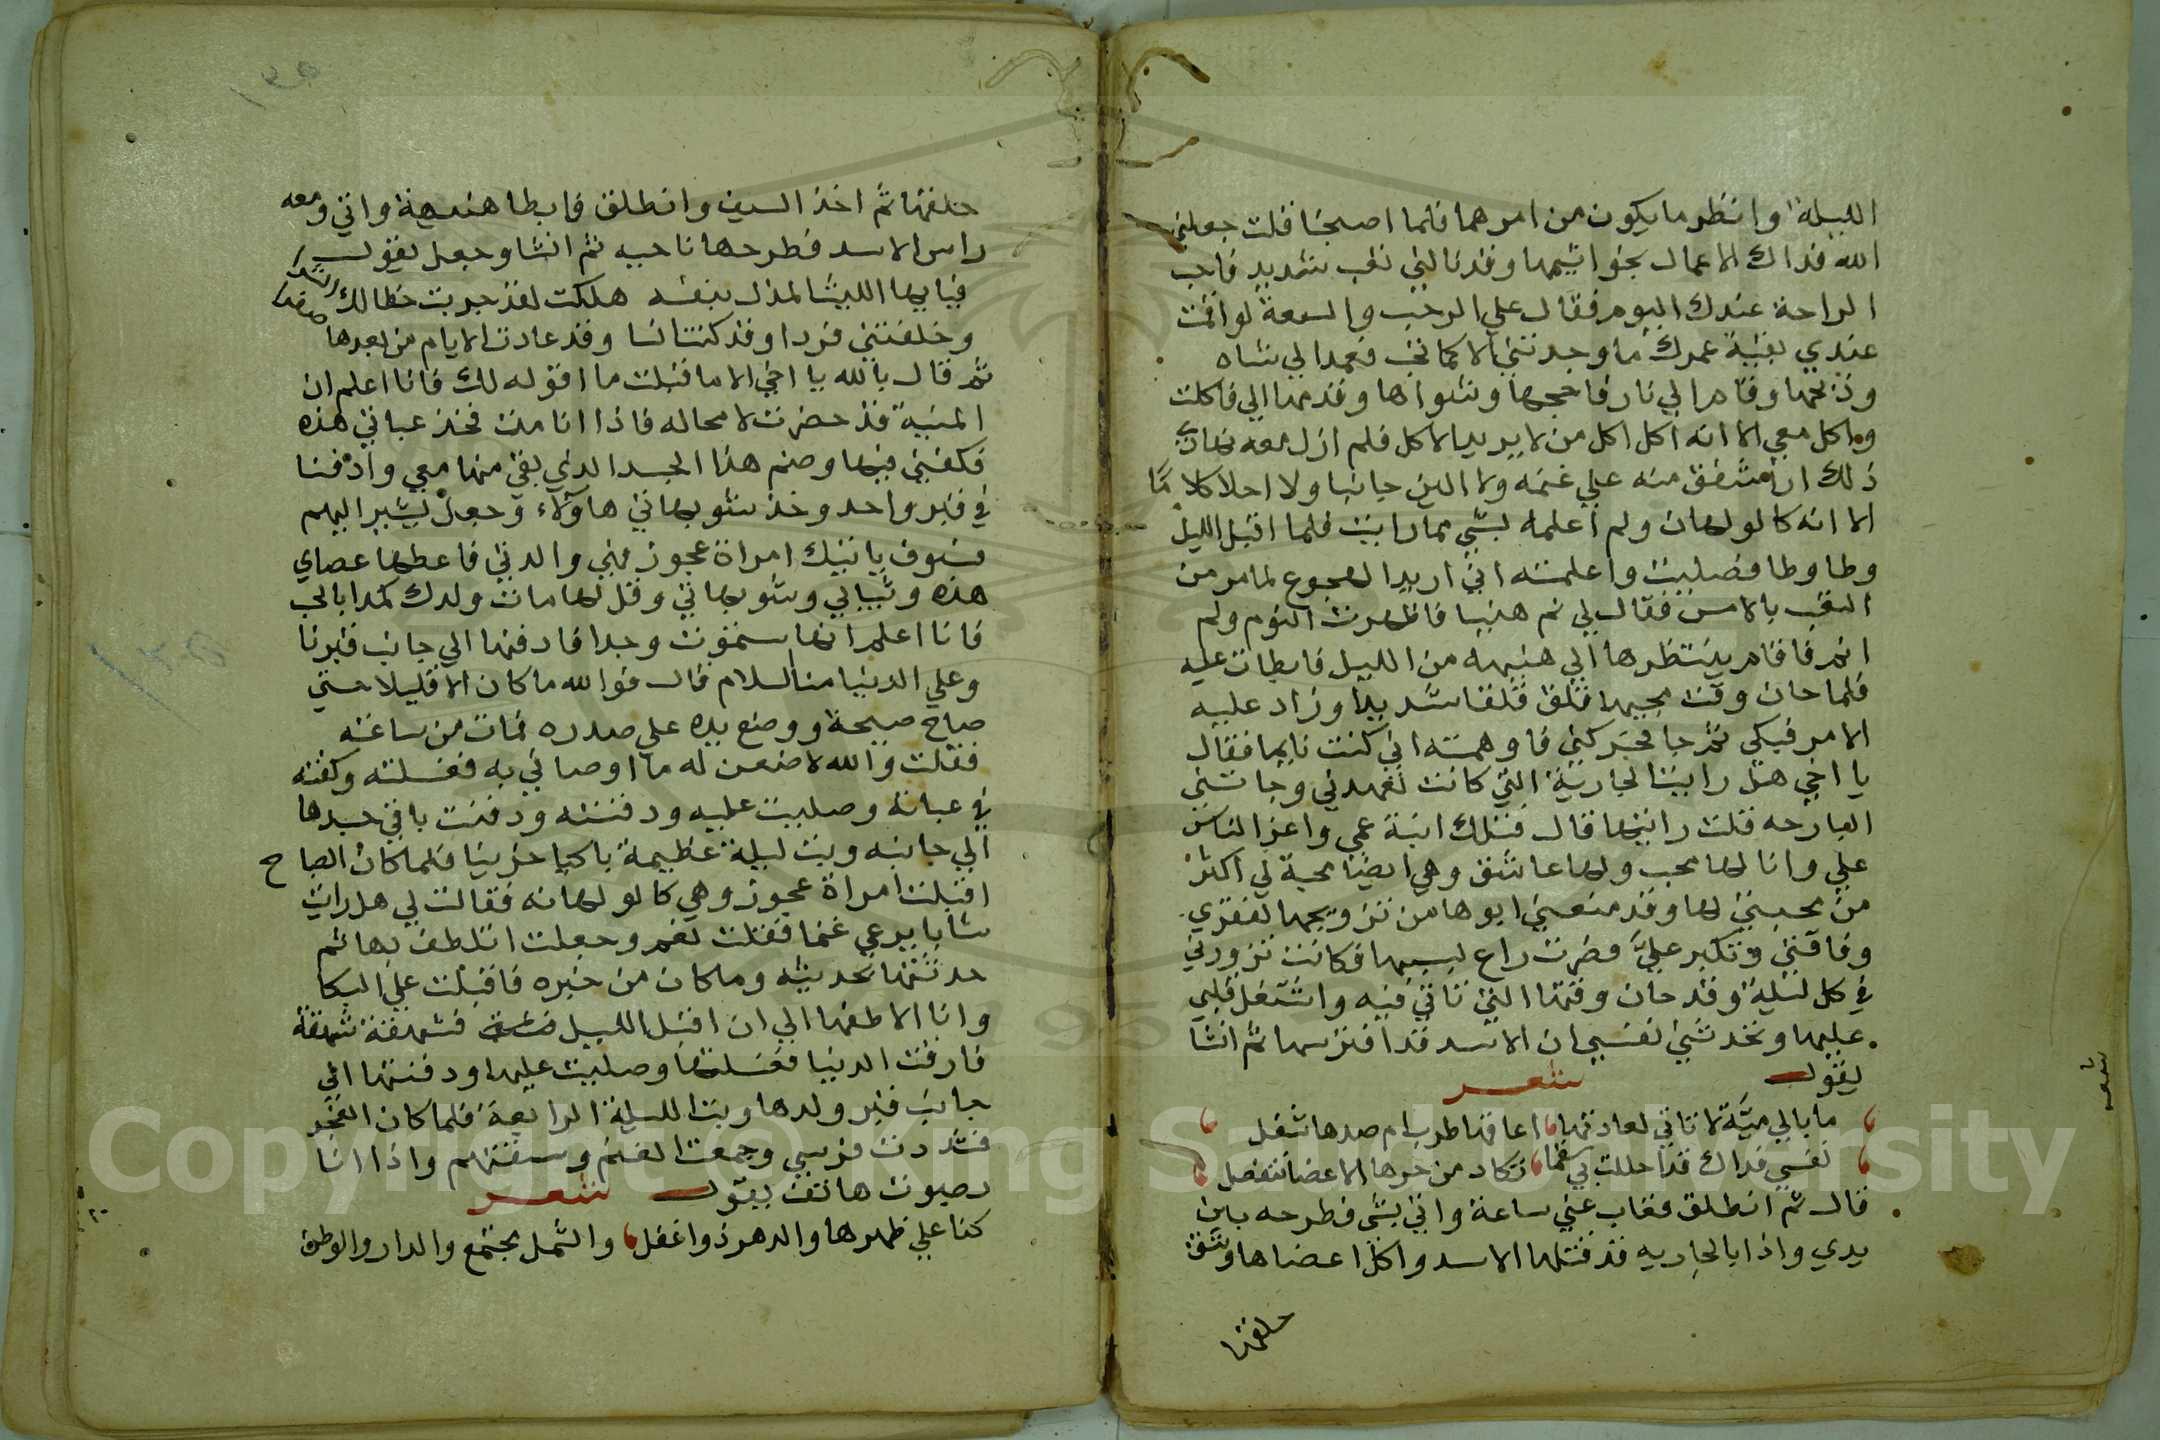 الليلة وانظر ما يكون من امرهما فلما اصبحنا قلت جعلني
الله فداك الاعمال بخواتيمها وقد نالني تعب شديد فاحب
الراحة عندك اليوم فقال علي الرحب والسعة لو اقمت
عندي بقية عمرك ما وجدتني الا كما تحب فعمد الي شاه
وذبحها وقام الي نار فاججها وشواها وقدمها الي فاكلت
واكل معي الا انه اكل اكل من لا يريد الاكل فلم ازل معه نهاري
ذلك اذ مشفق منه علي غنمه ولا الين جانبا ولا احلا كلاما
الا انه كالولهان ولم اعلمه بشي مما رايت فلما اقبل الليل
وطا وطا فصليت واعلمته اني اريد الهجوع لما مر من
التعب بالامس فقال لي نم هنيا فاظهرت النوم ولم
انم فاقام ينتظرها الي هنيهه من الليل فابطات عليه
فلما حان وقت مجيها قلق قلقا شديدا وزاد عليه
الامر فبكي ثم جا فحركني فاوهمته اني كنت نايما فقال
يا اخي هل رايت الجارية التي كانت تتعهدني وجاتني
البارحه قلت رايتها قال فتلك ابنة عمي واعز الناس
علي وانا لها محب ولها عاشق وهي ايضا محبة لي اكثر
من محبتي لها وقد منعني ابوها من تزويجها لفقري
وفاقتي وتكبر علي فصرت راع لسببها فكانت تزورني
في كل ليلة وقد حان وقتها التي تاتي فيه واشتغل قلبي
عليها وتحدثني نفسي ان الاسد قد افترسها ثم انشا
يقول شعر
ما بالي مية لا تاتي لعادتها اعاقها طرب ام صدها شغل
نفسي فداك قد احللت بي سقما تكاد من حرها الاعضا تنفصل
قال ثم انطلق فغاب عني ساعة واتي بشي فطرحه بين
يدي واذا بالجاريه قد قتلها الاسد واكل اعضاها وشق
خلقتها
شعر
خلقتها ثم اخذ السيف وانطلق فابطا هنيهة واتي ومعه
راس الاسد فطرحها ناحيه ثم انشا وجعل يقول
فيا ايها الليث المذل بنفسه هلكت لقد جريت حقا لك
وخلفتني فردا وقد كنت انسا وقد عادت الايام من بعدها
ثم قال بالله يا اخي الا ما قبلت ما اقوله لك فانا اعلم ان
المنية قد حضرت لا محاله فاذا انا مت فخذ عباتي هذه
فكفني فيها وضم هذا الجسد الذي بقي منها معي وادفنا
في قبر واحد وخذ شويهاتي هاولاء وجعل يشير اليهم
فسوف ياتيك امراة عجوز هي والدتي فاعطها عصاي
هذه وثيابي وشويهاتي وقل لها مات ولدك كمدا بالحب
فانا اعلم انها ستموت وجدا فادفنها الي جانب قبرنا
وعلي الدنيا منا السلام قال فوالله ما كان الا قليلا حتي
صاح صيحة ووضع يده علي صدره فمات من ساعته
فقلت والله لاصنعن له ما اوصاني به فغسلته وكفنته
في عباته وصليت عليه ودفنته ودفنت باقي جسدها
الي جانبه وبت ليلة عظيمة باكيا حزينا فلما كان الصباح
اقبلت امراة عجوز وهي كالولهانه فقالت لي هل رايت
شابا يرعي غنما فقلت نعم وجعلت اتلطف بها ثم
حدثتها بحديثه وما كان من خبره فاقبلت علي البكا
وانا الاطفها الي ان اقبل الليل فشهقة شهقة
فارقت الدنيا فغسلتها وصليت عليها ودفنتها الي
جانب قبر ولدها وبت الليلة الرابعة فلما كان الفجر
فشددت فرسي وجمعت الغنم وسقتهم واذا انا
بصوت هاتف يقول شعر
كنا علي ظهرها والدهر ذو اغفل والشمل يجتمع والدار والوطن